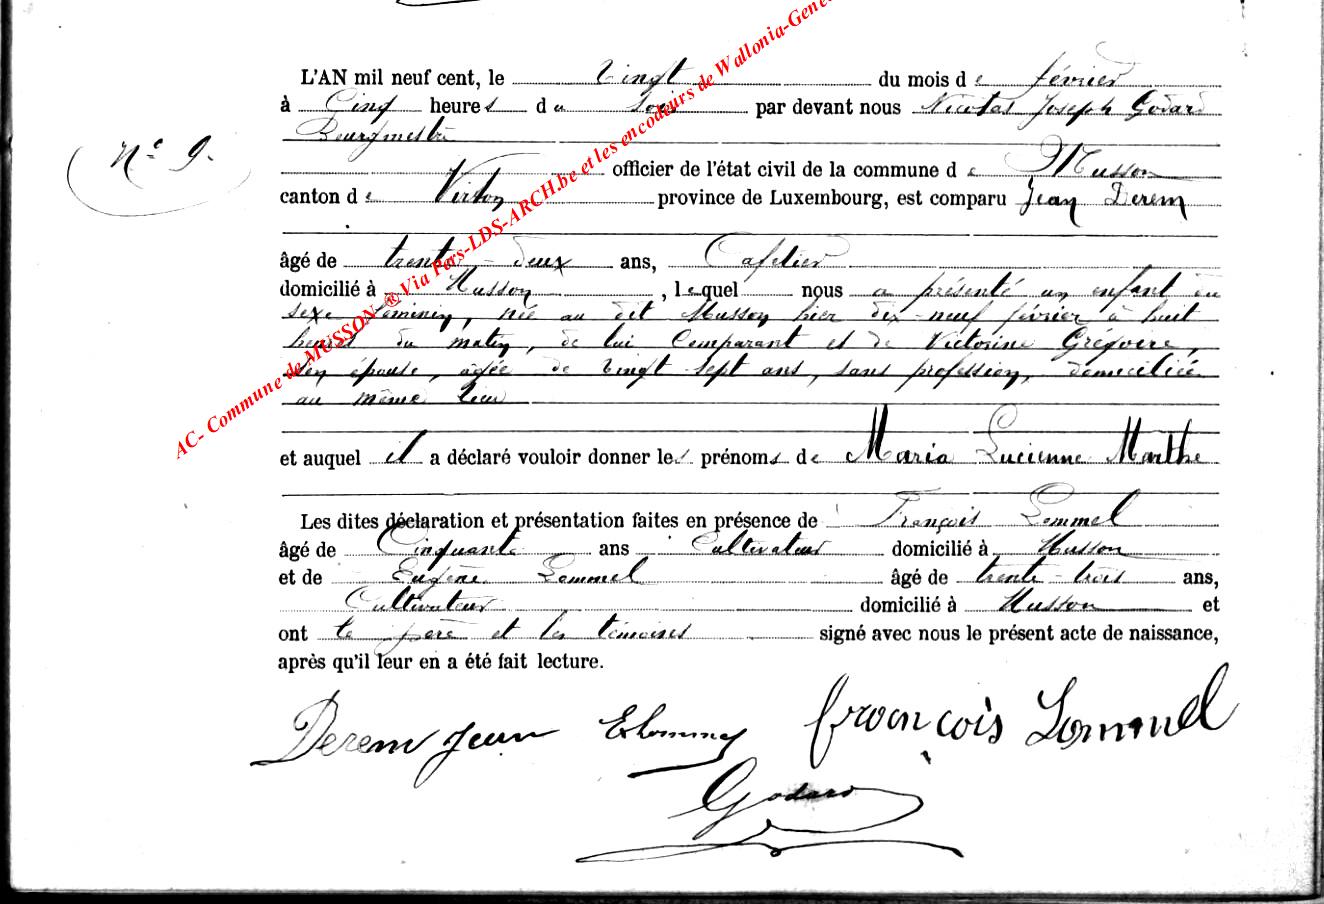 L'AN mil neuf cent, le vingt du mois de février
à Cinq heures du soir par devant nous Nicolas Joseph Godard
Bourgmestre
N° 9.
officier de l'état civil de la commune de Musson
canton de Virton province de Luxembourg, est comparu Jean Derem
âgé de trente-deux ans, Cafetier
domicilié à Musson, lequel nous a présenté un enfant du
sexe féminin, née au dit Musson hier dix-neuf février à huit
heures du matin, de lui Comparant et de Victorine Grégoire,
son épouse, agée de vingt sept ans, sans profession, domiciliée
au même lieu
et auquel il a déclaré vouloir donner les prénoms de Maria Lucienne Marthe
Les dites déclaration et présentation faites en présence de François Lommel
âgé de Cinquante ans Cultivateur domicilié à Musson
et de Eugène Lommel âgé de trente-trois ans,
Cultivateur domicilié à Musson et
ont le père et les témoins signé avec nous le présent acte de naissance,
après qu'il leur en a été fait lecture.
Derem Jean ELommel François Lommel
Godard
AC- Commune de MUSSON ® Via Pers-LDS-ARCH.be et les encodeurs de Wallonia-Gene